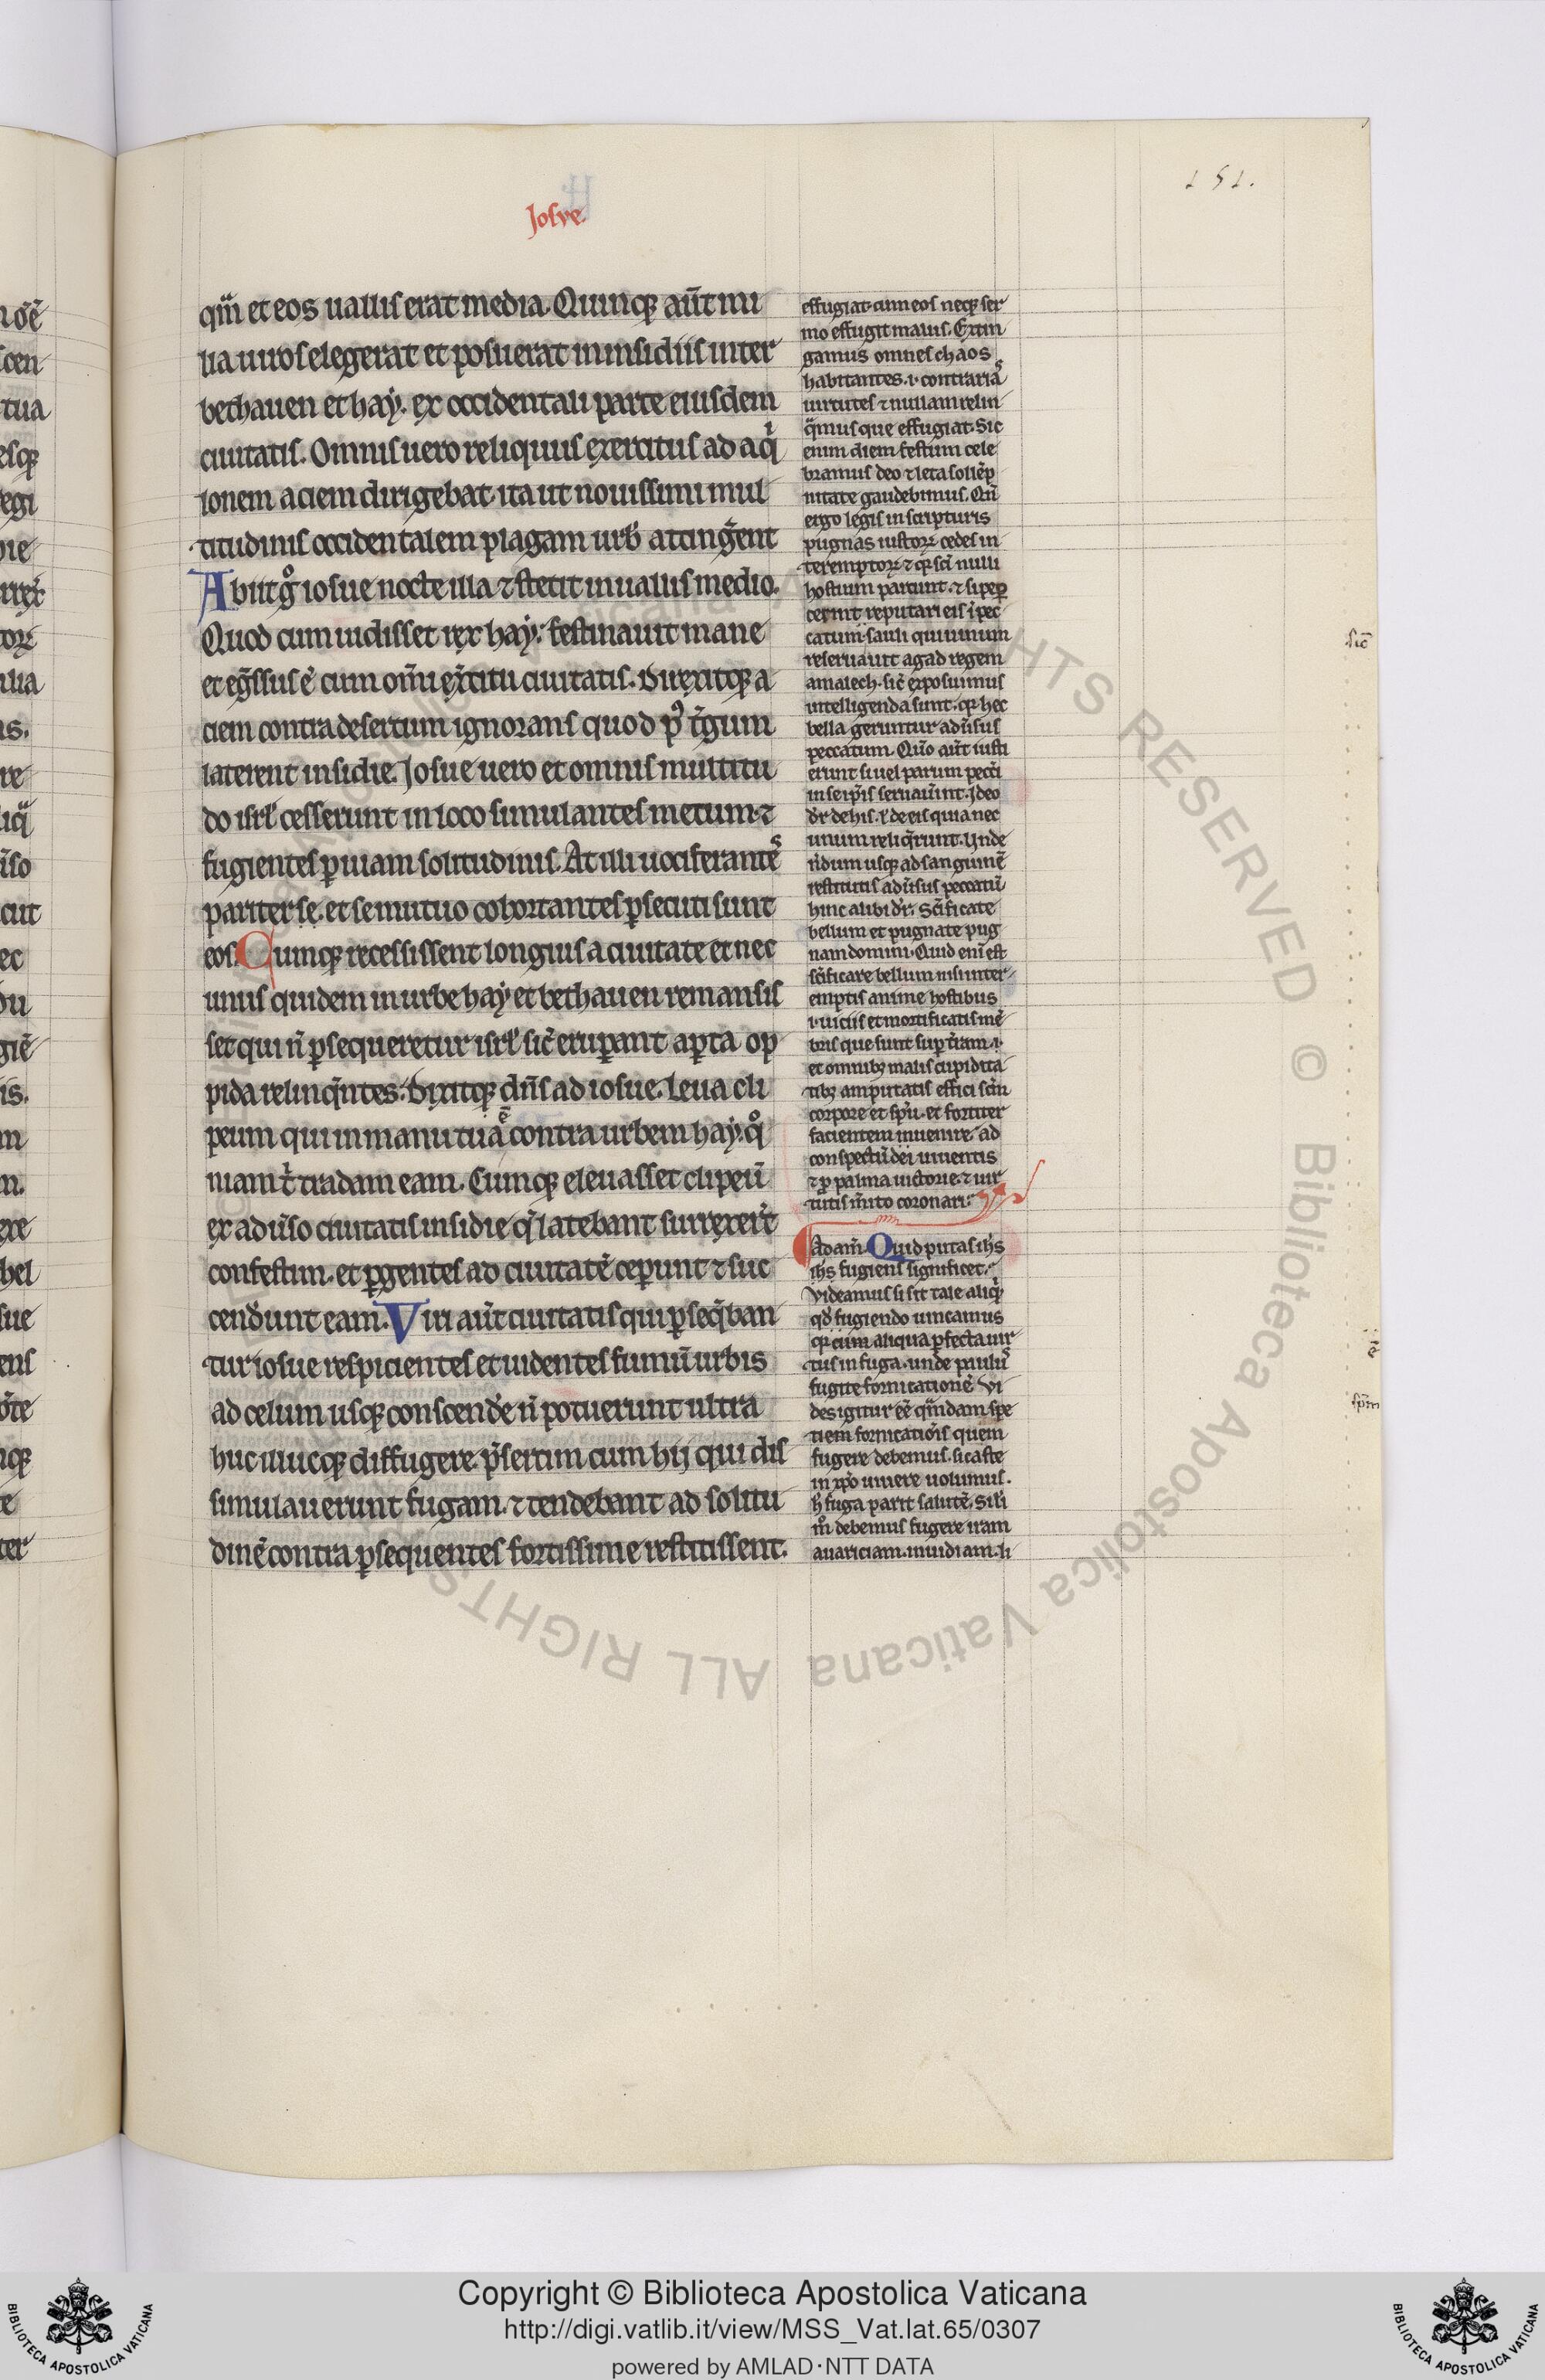 Josve
151.
qm̄ et eos uallis erat media. Quinqꝫ aūt mi
lia uiros elegerat et posuerat in insidiis inter
bethauen et haẏ. ex occidentali parte eiusdem
ciuitatis. Omnis uero reliquus exercitus ad aqͥ
lonem aciem dirigebat. ita ut nouissimi mul
titudinis occidentalem plagam urb̄ attinḡent
Abiit gͦ iosue nocte illa ⁊ stetit in uallis medio.
Quod cum uidisset rex haẏ. festinauit mane
et eg̃ssus ē cum om̄i ex̄citu ciuitatis. Direxitqꝫ a
ciem contra desertum ignorans quod pꝰ t̄gum
laterent insidie. Josue uero et omnis multitu
do isrl̄ cesserunt in loco simulantes metum. ⁊
fugientes ꝑ uiam solitudinis. At illi uociferante͛s
pariter se. et se mutuo cohortantes ꝑsecuti sunt
eos. Cumqꝫ recessissent longius a ciuitate et nec
unus quidem in urbe haẏ et bethauen remansis
set qui n̄ ꝑsequeretur isrl̄ sic̄ eruꝑant aꝑta op
pida relinq̄ntes. Dixitqꝫ dn̄s ad iosue. Leua cli
peum qui in manu tua ē contra urbem haẏ. qͦ
niam t̄ tradam eam. Cumqꝫ eleuasset clipeū
ex adūso ciuitatis insidie q̄ latebant surrexer̄t
confestim. et ꝑgentes ad ciuitatē ceꝑunt ⁊ suc
cend̄unt eam. Viri aūt ciuitatis qui ꝑseq̄ban
tur iosue respicientes et uidentes fumū urbis
ad celum usqꝫ conscend̄e n̄ potuerunt ultra
huc illucqꝫ diffugere. p̄sertim cum hij qui dis
simulauerunt fugam. ⁊ tendebant ad solitu
dinē contra ꝑsequentes fortissime restitissent.
effugiat. cum eos neqꝫ ser
mo effugit mauis. Extin
gamus omnes chaos
habitantes. i. contraria͛s
uirtutes ⁊ nullam relin
q̄mus que effugiat. Sic
enim diem festum cele
bramus deo ⁊ leta sollēp
nitate gaudebimus. Qn̄
ergo legis in scripturis
pugnas iustoꝝ cedes in
teremptoꝝ ⁊ qꝛ sc̄i nulli
hostium parcunt. ⁊ si peꝑ
cerint reputari eis ī pec
catum. sauli qui uiuum
reseruauit agad regem
amalech. sic̄ exposuimus
intelligenda sunt. qꝛ hec
bella geruntur adūsus
peccatum. Quō aūt iusti
erunt si uel parum pecc̄i
in seip̄is seruaūint. Ideo
dr̄ de his. ł de eis quia nec
unum reliq̄runt. Unde
n̄dum usqꝫ ad sanguinē
restitutis adūsus peccatū
hinc alibi dr̄. Sc̄ificate
bellum et pugnate pug
nam domini. Quid enī est
sc̄ificare bellum nisi inter
emptis anime hostibus
.i. uiciis et mortificatis mē
bris que sunt suꝑ t̄ram. i.
et omnibꝫ malis cupidita
tibꝫ amputatis effici sc̄m
corpore et sp̄u. et fortiter
facientem inuenire ad
conspectū dei uiuentis
⁊ ꝓ palma uictorie. ⁊ uir
tutis m̄ito coronari.
Adam̄. Quid putas ih̄s
ih̄s fugiens significet.
Videamus si sit tale aliqͥ
qd̄ fugiendo uincamus
qꝛ cum aliqua ꝑfecta uir
tus in fuga. unde paulus
fugite fornicationē. Vi
des igitur eē qm̄dam spe
tiem fornicatiōis quem
fugere debemus. si caste
in xp̄o uiuere uolumus.
h̄ fuga parit salutē. Sili
mͦ debemus fugere iram
auariciam. inuidiam. h̄
sic̄
ē
sp̄m
Copyright © Biblioteca Apostolica Vaticana
http://digi.vatlib.it/view/MSS_Vat.lat.65/0307
powered by AMLAD·NTT DATA